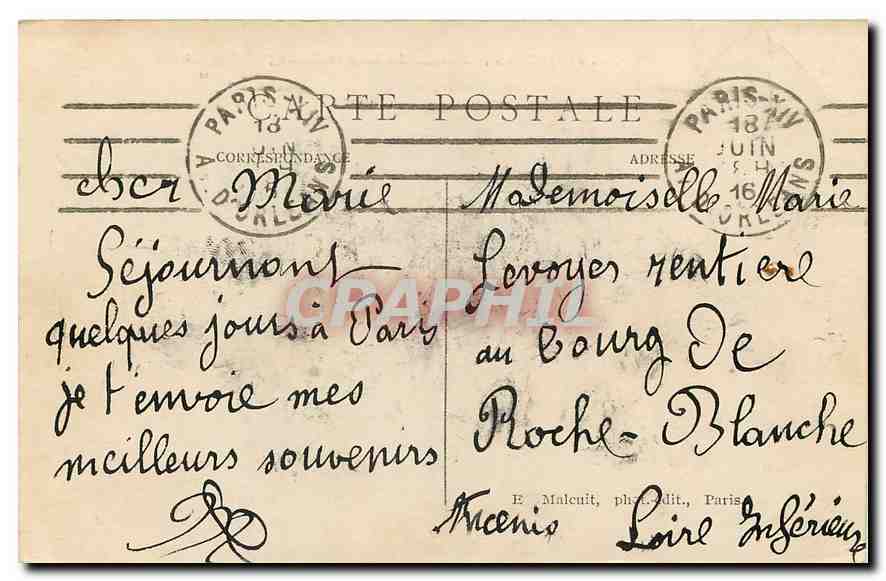 CARTE POSTALE
PARIS-XIV
18
JUIN
AV. D'ORLEANS
PARIS-XIV
18
JUIN
16
AV. D'ORLEANS
CORRESPONDANCE
cher Marie
Séjournant
quelques jours à Paris
je t'envoie mes
meilleurs souvenirs
ADRESSE
Mademoiselle Marie
Levoyer rentiere
au bourg De
Roche-Blanche
Ancenis Loire Inférieure
E Malcuit, phot.-édit., Paris.
CPAPHIL